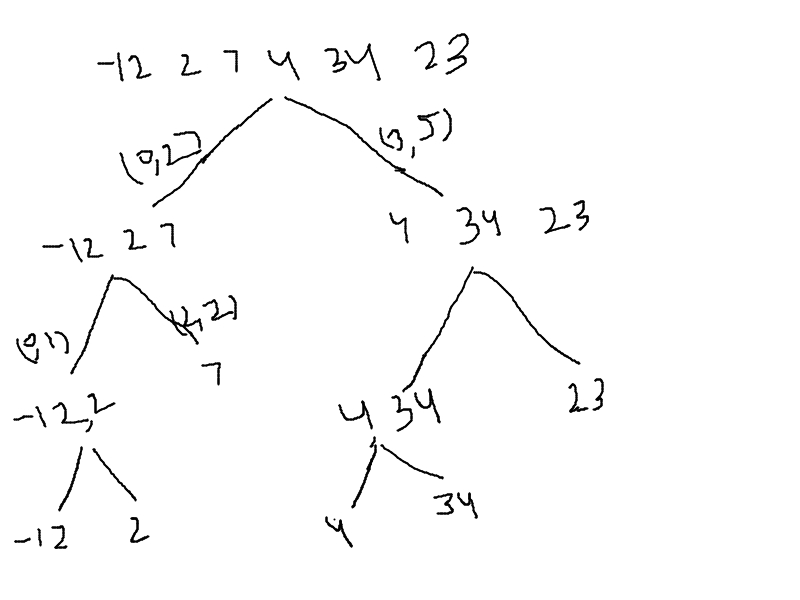 -12 2 7 4 34 23
(0,2) (3,5)
-12 2 7 4 34 23
(0,1) (2,2)
7
-12,2 4 34 23
-12 2 4 34